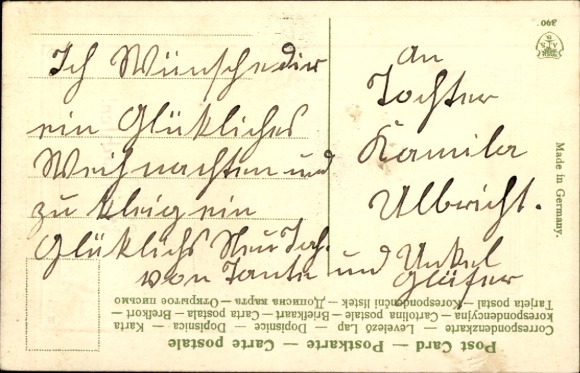 Ich Wünsche dir
ein Glükliches
Weihnachten und
zu kleig ein
Glüklichs Neu Jah.
von Tante und Unkel
Gläser
an
Tochter
Kamila
Ulbricht.
Made in Germany.
390.
Post Card — Postkarte — Carte postale
Correspondenzkarte — Levelező Lap — Dopisnice — Dopisnica — Karta
korespondencyjna — Cartolina postale — Briefkaart — Carta postala — Brefkort —
Tarjeta postal — Korespondenční listek — Дописна карта — Открытое письмо